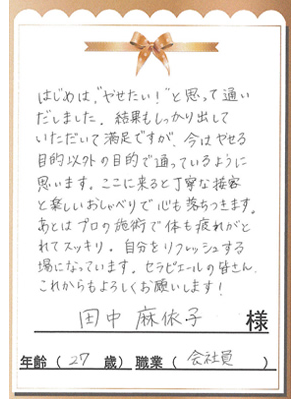 はじめは、"やせたい!"と思って通い
だしました。結果もしっかり出して
いただいて満足ですが、今はやせる
目的以外の目的で通っているように
思います。ここに来ると丁寧な接客
と楽しいおしゃべりで心も落ちつきます。
あとはプロの施術で体も疲れがと
れてスッキリ。自分をリフレッシュする
場になっています。セラピエールの皆さん、
これからもよろしくお願いします!
田中 麻依子 様
年齢(27 歳)職業(会社員)